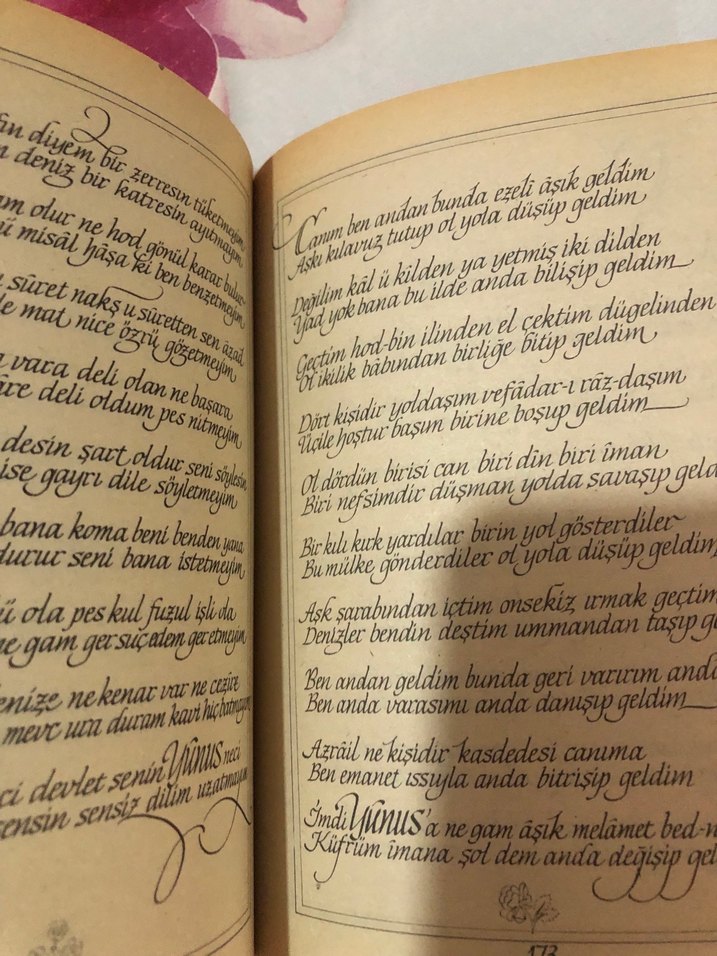 diyem bir zerresin tüketmeyim
deniz bir katresin ayıtmayım
olur ne hod gönül karar bulur
misâl hâşa ki ben benzetmeyim
sûret nakş u sûretten sen âzad
mat nice özrü gözetmeyim
vara deli olan ne başara
deli oldum pes nitmeyim
desin şart oldur seni söylesin
ise gayrı dile söyletmeyim
bana koma beni benden yana
durur seni bana istetmeyim
ola pes kul fuzul işli ola
ne gam ger suç edem ger etmeyim
ne kenar var ne cezîre
mevc ura duram kavi hiç batmayım
devlet senin Yûnus neci
sensin sensiz dilim uzatmayım
Canım ben andan bunda ezelî âşık geldim
Aşkı kılavuz tutup ol yola düşüp geldim
Değilim kâl ü kilden ya yetmiş iki dilden
Yad yok bana bu ilde anda bilişip geldim
Geçtim hod-bin ilinden el çektim dügelinden
Ol ikilik bâbından birliğe bitip geldim
Dört kişidir yoldaşım vefâdar-ı râz-daşım
Üçile hoştur başım birine boşup geldim
Ol dördün birisi can biri dîn biri îman
Biri nefsimdir düşman yolda savaşıp
Bir kılı kırk yardılar birin yol gösterdiler
Bu mülke gönderdiler ol yola düşüp geldim
Aşk şarabından içtim onsekiz ırmak geçtim
Denizler bendin deştim ummandan taşıp
Ben andan geldim bunda geri varırım
Ben anda varasımı anda danışıp geldim
Azrâil ne kişidir kasdedesi canıma
Ben emanet ıssıyla anda bitrişip geldim
İmdi Yûnus'a ne gam âşık melâmet
Küfrüm îmana şol dem anda değişip
173